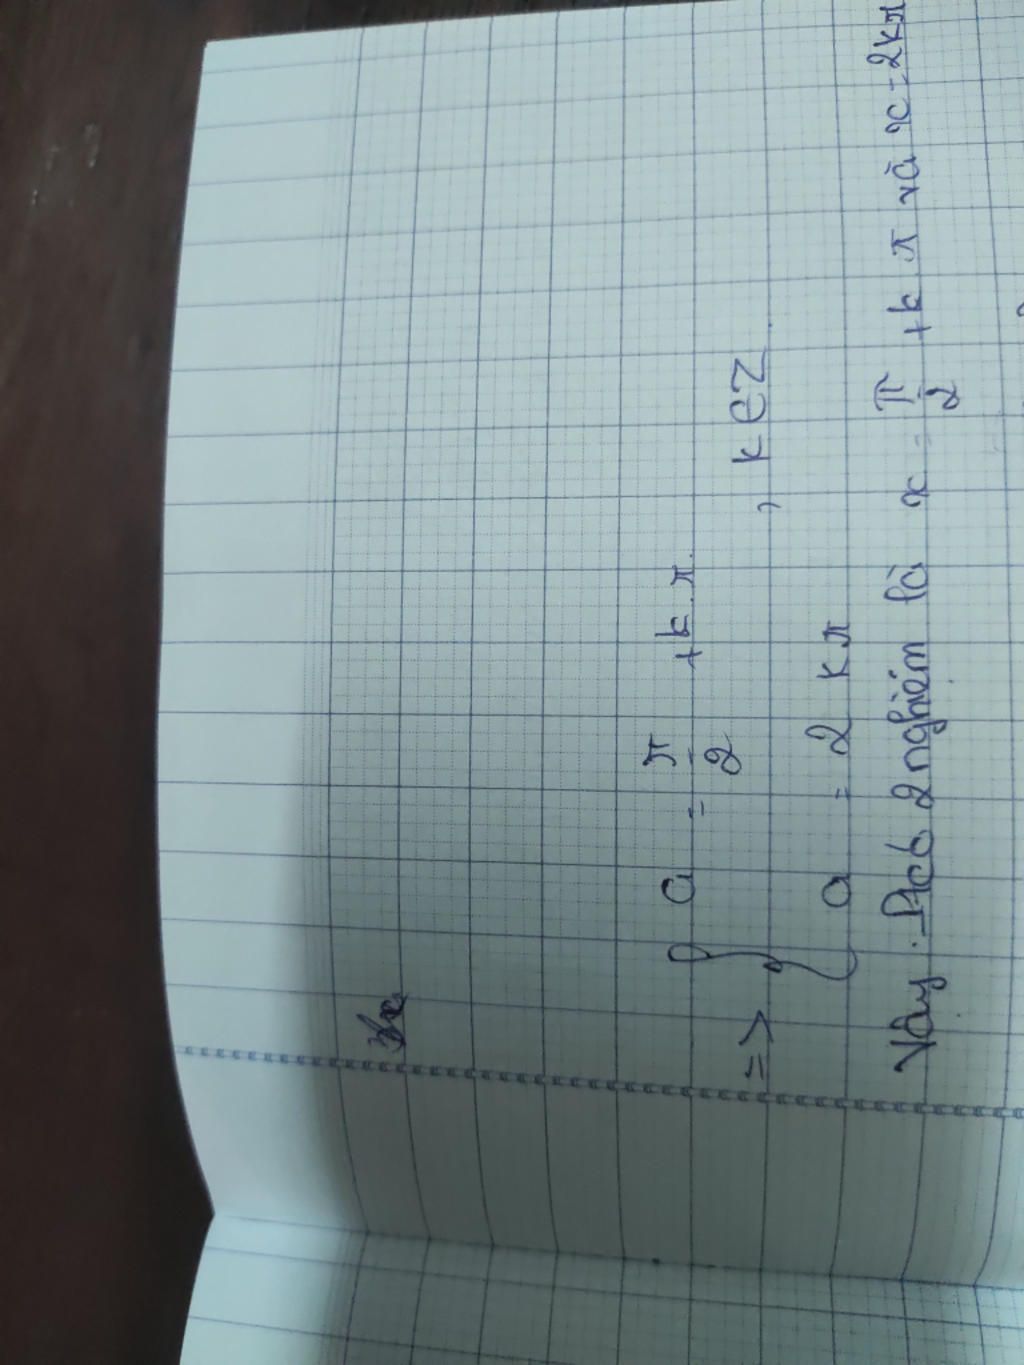 a = π/2 + k.π.
=> { , k ∈ Z.
a = 2 k π
Vậy Ptcb 2 nghiệm là x = π/2 + k π và x = 2kπ